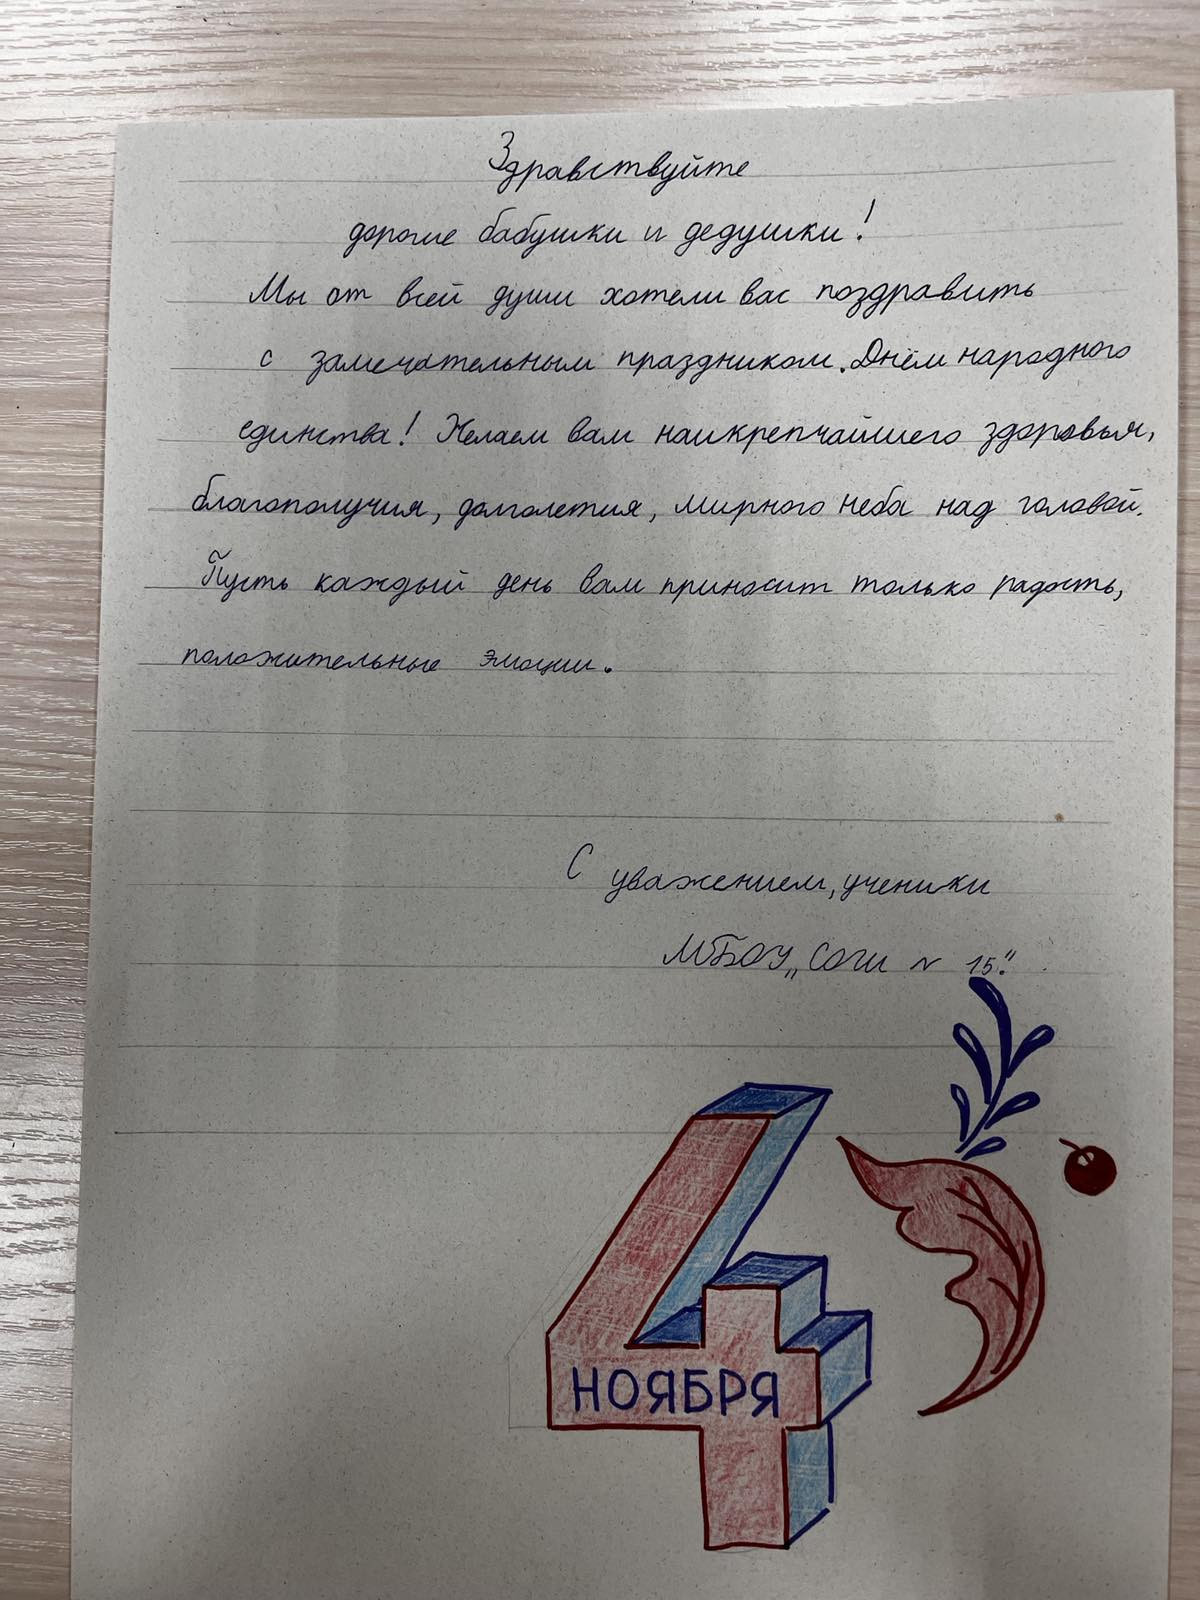 Здравствуйте
дорогие бабушки и дедушки!
Мы от всей души хотели вас поздравить
с замечательным праздником. Днём народного
единства! Желаем вам наикрепчайшего здоровья,
благополучия, долголетия, мирного неба над головой.
Пусть каждый день вам приносит только радость,
положительные эмоции.
С уважением, ученики
МБОУ „СОШ N 15."
4
НОЯБРЯ